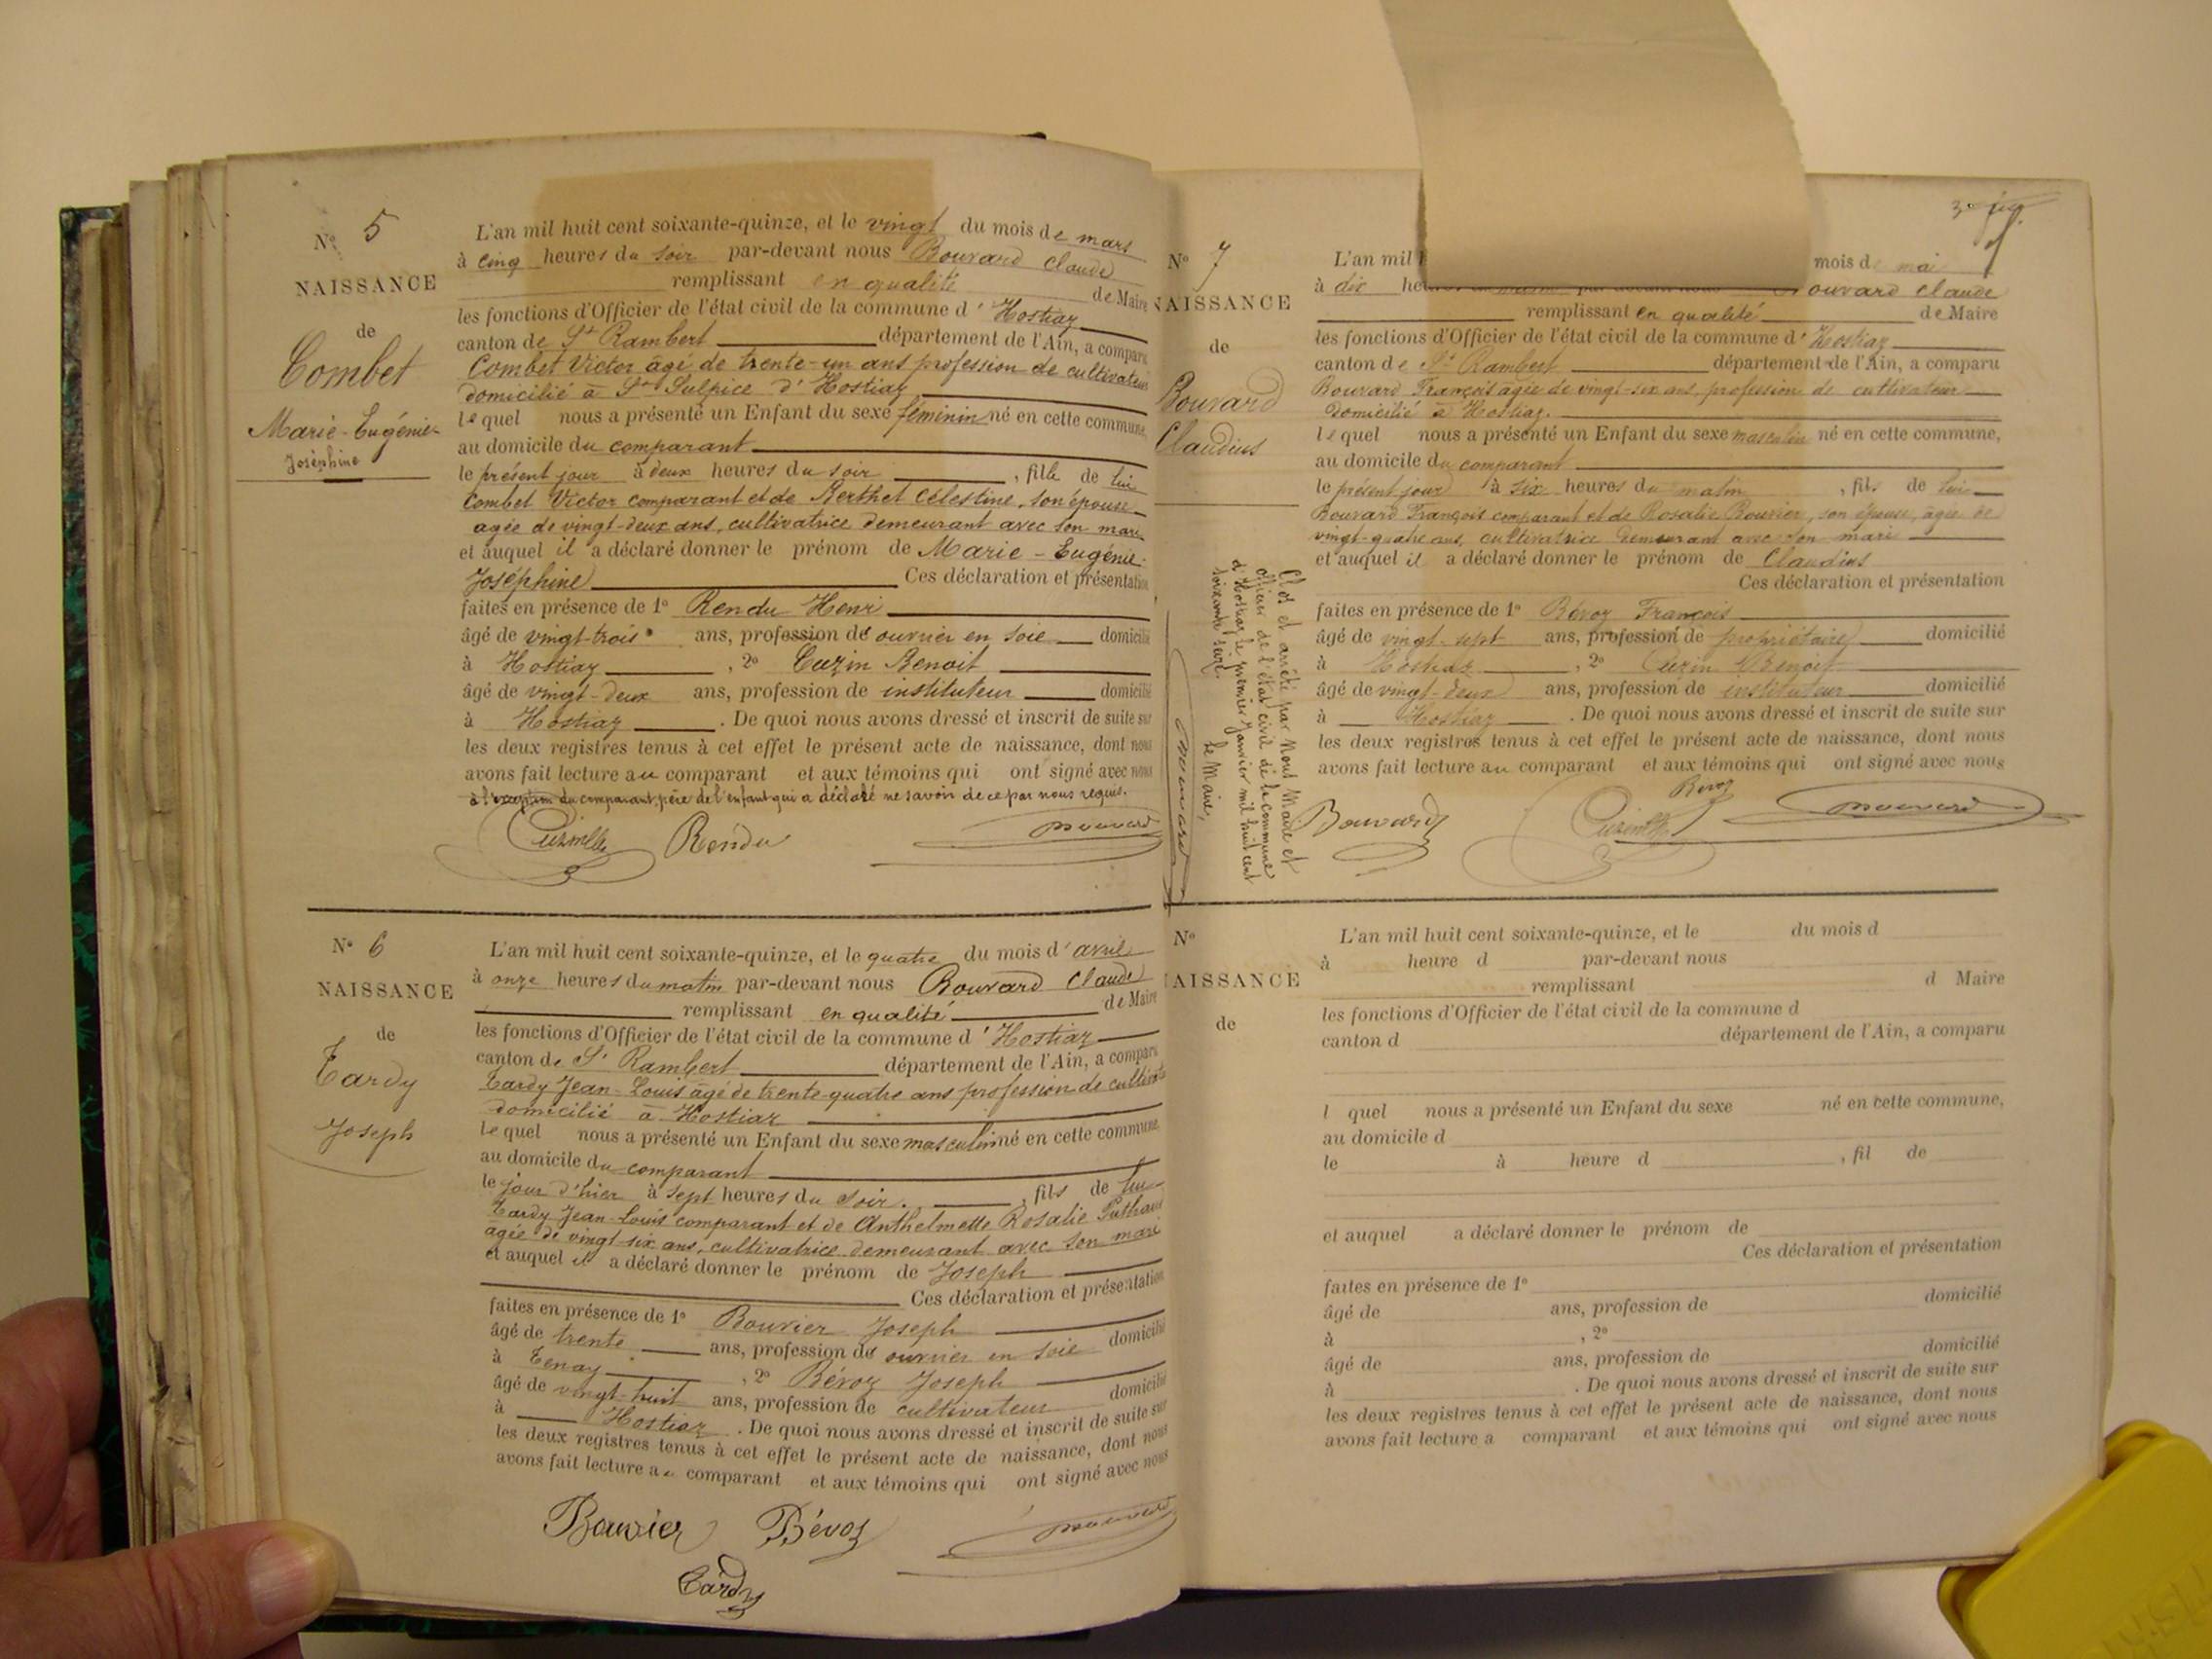 N° 5
NAISSANCE
de
Combet
Marie-Eugénie-
Joséphine
L'an mil huit cent soixante-quinze, et le vingt du mois de mars
à cinq heures du soir par-devant nous Bouvard Claude
remplissant en qualité de Maire
les fonctions d'Officier de l'état civil de la commune d'Hostiaz
canton de St Rambert département de l'Ain, a comparu
Combet Victor âgé de trente-un ans profession de cultivateur
domicilié à St Sulpice d'Hostiaz
lequel nous a présenté un Enfant du sexe féminin né en cette commune,
au domicile du comparant
le présent jour à deux heures du soir, fille de lui
Combet Victor comparant et de Berthet Célestine, son épouse
agée de vingt-deux ans, cultivatrice demeurant avec son mari
et auquel il a déclaré donner le prénom de Marie-Eugénie-
Joséphine Ces déclaration et présentation
faites en présence de 1° Rendu Henri
âgé de vingt-trois ans, profession de ouvrier en soie domicilié
à Hostiaz, 2° Cuzin Benoit
âgé de vingt-deux ans, profession de instituteur domicilié
à Hostiaz. De quoi nous avons dressé et inscrit de suite sur
les deux registres tenus à cet effet le présent acte de naissance, dont nous
avons fait lecture au comparant et aux témoins qui ont signé avec nous
à l'exception du comparant, père de l'enfant qui a déclaré ne savoir de ce par nous requis.
Rendu Bouvard
N° 6
NAISSANCE
de
Tardy
Joseph
L'an mil huit cent soixante-quinze, et le quatre du mois d'avril
à onze heures du matin par-devant nous Bouvard Claude
remplissant en qualité de Maire
les fonctions d'Officier de l'état civil de la commune d'Hostiaz
canton de St Rambert département de l'Ain, a comparu
Tardy Jean-Louis âgé de trente-quatre ans profession de cultivateur
domicilié à Hostiaz
lequel nous a présenté un Enfant du sexe masculin né en cette commune,
au domicile du comparant
le jour d'hier à sept heures du soir., fils de lui
Tardy Jean-Louis comparant et de Anthelmette Rosalie
agée de vingt six ans, cultivatrice demeurant avec son mari
et auquel il a déclaré donner le prénom de Joseph
Ces déclaration et présentation
faites en présence de 1° Bouvier Joseph
âgé de trente ans, profession de ouvrier en soie domicilié
à Tenay, 2° Bévoz Joseph
âgé de vingt-huit ans, profession de cultivateur domicilié
à Hostiaz. De quoi nous avons dressé et inscrit de suite sur
les deux registres tenus à cet effet le présent acte de naissance, dont nous
avons fait lecture au comparant et aux témoins qui ont signé avec nous
Bouvier Bévoz Bouvard
Tardy
N° 7
NAISSANCE
de
Bouvard
Claudius
L'an mil mois de mai
à dix Bouvard Claude
remplissant en qualité de Maire
les fonctions d'Officier de l'état civil de la commune d'Hostiaz
canton de St Rambert département de l'Ain, a comparu
Bouvard François agée de vingt-six ans, profession de cultivateur
domicilié à Hostiaz.
lequel nous a présenté un Enfant du sexe masculin né en cette commune,
au domicile du comparant
le présent jour à six heures du matin, fils de lui
Bouvard François comparant et de Rosalie Bouvier, son épouse, agée de
vingt-quatre ans, cultivatrice demeurant avec son mari
et auquel il a déclaré donner le prénom de Claudius
Ces déclaration et présentation
faites en présence de 1° Bévoz François
âgé de vingt-sept ans, profession de propriétaire domicilié
à Hostiaz, 2° Cuzin Benoit
âgé de vingt-deux ans, profession de instituteur domicilié
à Hostiaz. De quoi nous avons dressé et inscrit de suite sur
les deux registres tenus à cet effet le présent acte de naissance, dont nous
avons fait lecture au comparant et aux témoins qui ont signé avec nous
Bévoz
Bouvard Bouvard
Clos et arrêté par Nous Maire et
officier de l'état civil de la commune
d'Hostiaz le premier Janvier mil huit cent
soixante seize.
Le Maire,
Bouvard
N°
NAISSANCE
de
L'an mil huit cent soixante-quinze, et le du mois d
à heure d par-devant nous
remplissant d Maire
les fonctions d'Officier de l'état civil de la commune d
canton d département de l'Ain, a comparu
l quel nous a présenté un Enfant du sexe né en cette commune,
au domicile d
le à heure d, fil de
et auquel a déclaré donner le prénom de
Ces déclaration et présentation
faites en présence de 1°
âgé de ans, profession de domicilié
à, 2°
âgé de ans, profession de domicilié
à. De quoi nous avons dressé et inscrit de suite sur
les deux registres tenus à cet effet le présent acte de naissance, dont nous
avons fait lecture a comparant et aux témoins qui ont signé avec nous